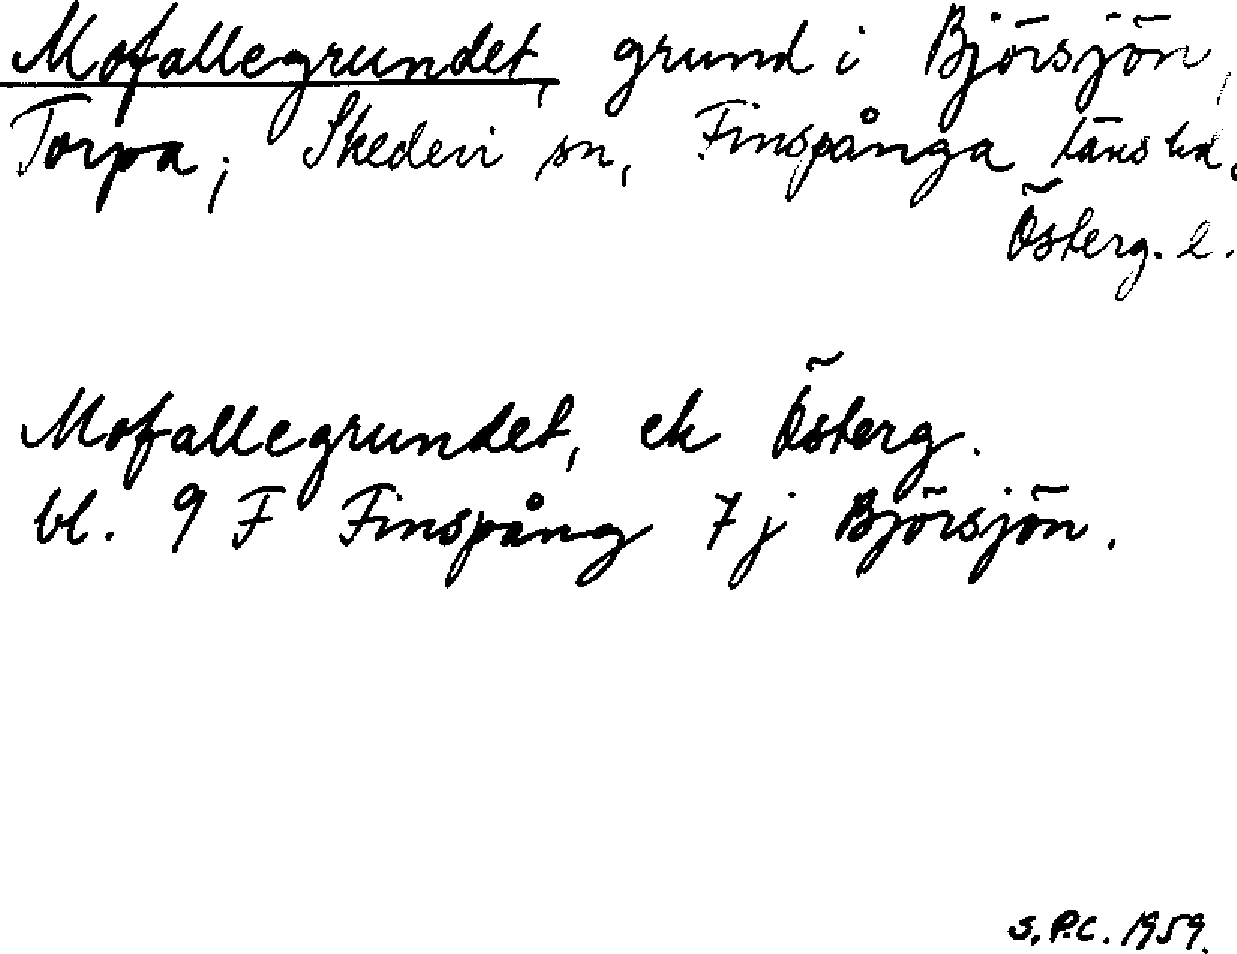 Mofallegrundet, grund i Björsjön,
Torpa, Skedevi sn, Finspånga läns hd,
Österg. l.
Mofallegrundet, ek Österg.
bl. 9 F Finspång 7 j Björsjön.
S.P.C. 1959.